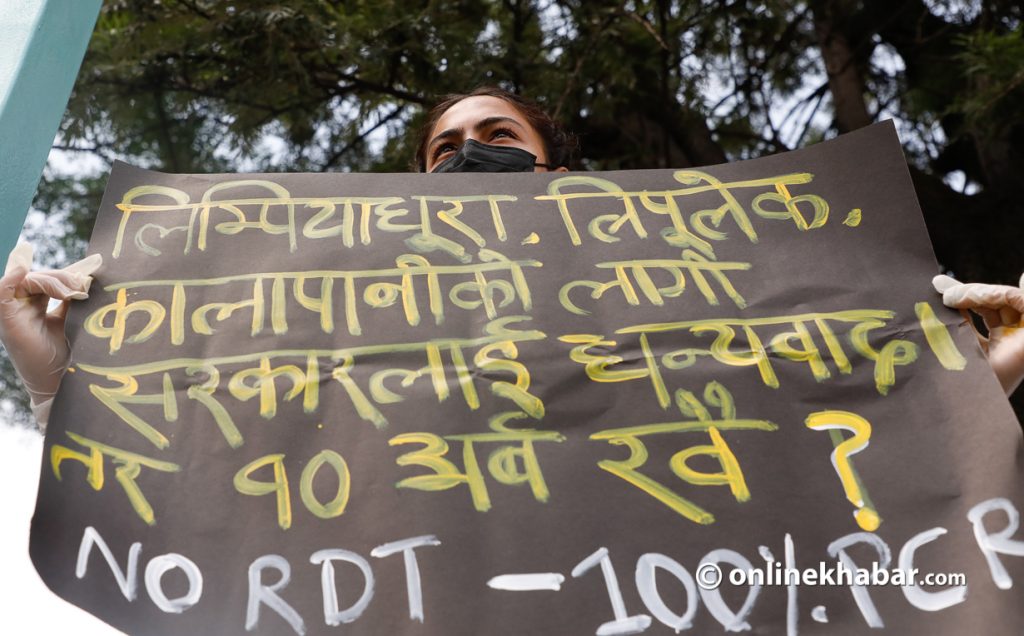 लिम्पियाधुरा, लिपुलेक,
कालापानीको लागी
सरकारलाई धन्यवाद।
तर १० अर्ब खै ?
NO RDT - 100% PCR
© onlinekhabar.com